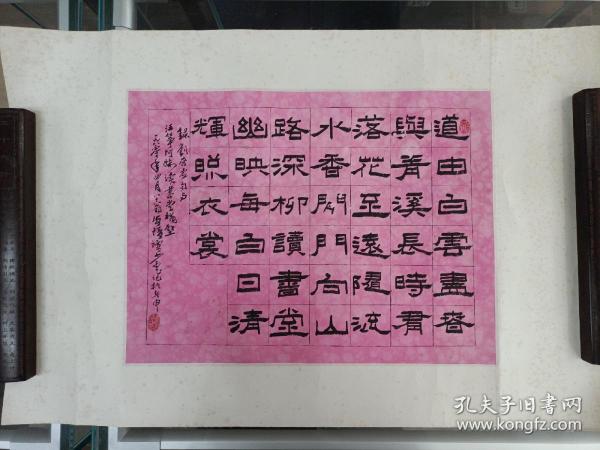 道由白雲盡春
與青溪長時有
落花至遠隨流
水香閑門向山
路深柳讀書堂
幽映每白日清
輝照衣裳
孔夫子旧书网
www.kongfz.com